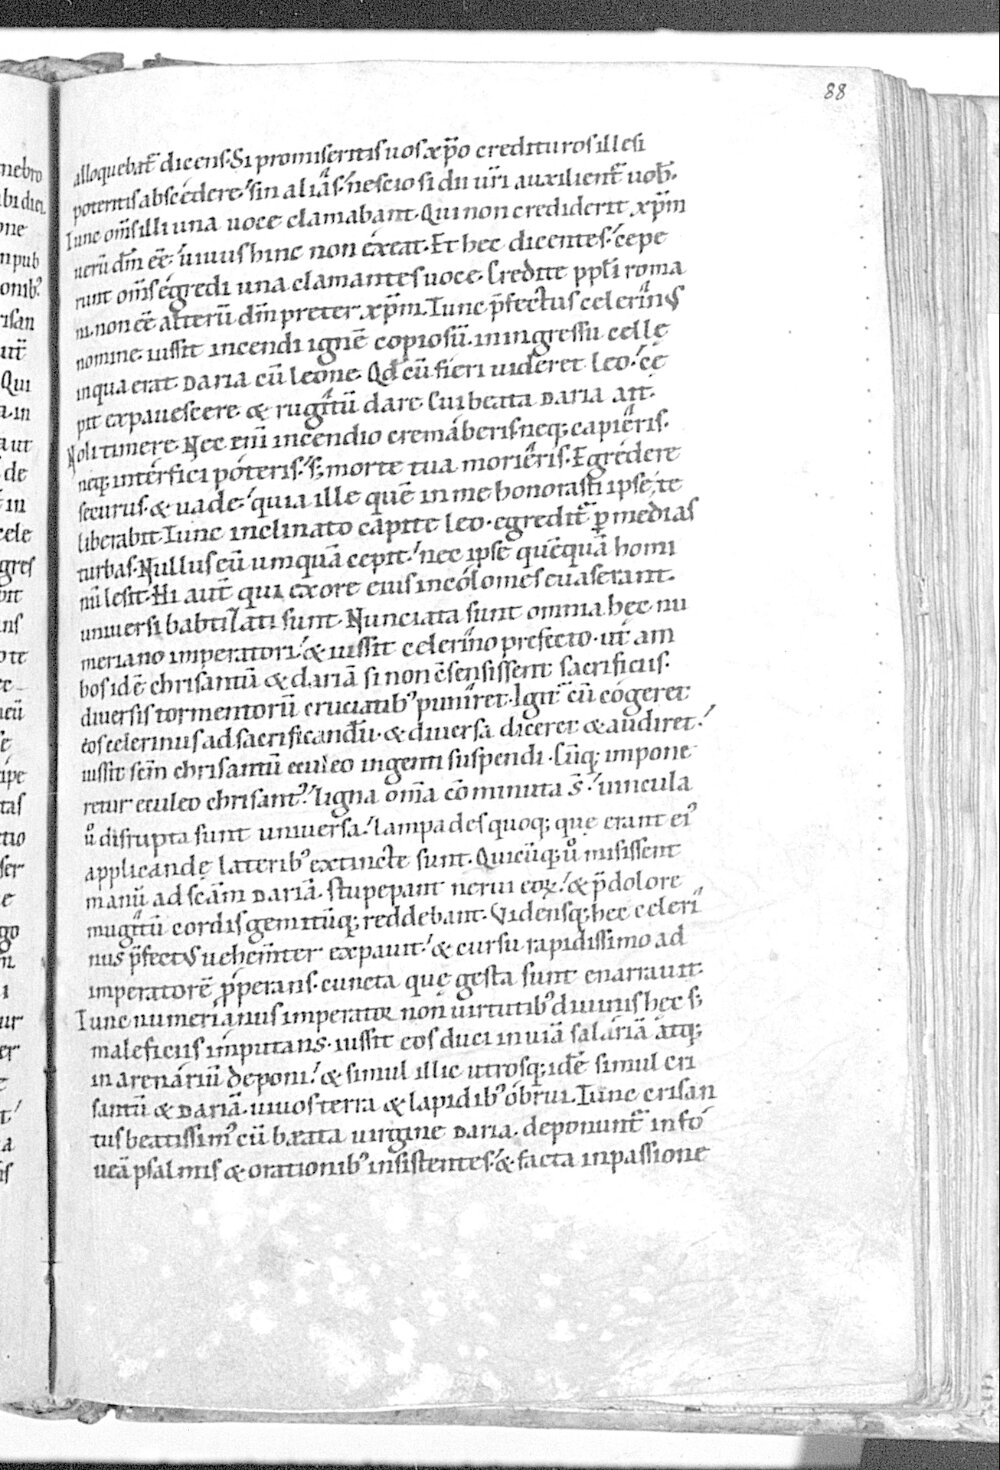 88
alloquebat̄ dicens. Si promiseritis uos xp̄o credituros illesi
potentis abscedere. sin aliâs. nescio si dii ur̄i auxilient̄ uob̄.
Tunc om̄s illi una uoce clamabant. Qui non crediderit xp̄m
uerū dm̄ eē. uiuus hinc non exeat. Et hec dicentes. cepe
runt om̄s egredi una clamantes uoce. Credite ppl̄i roma
ni. non eē alterū dm̄ preter xp̄m. Tunc p̄fectus celerin⁹
nomine iussit incendi ignē copiosū. in ingressu celle
in qua erat daria cū leone. Qd̄ cū fieri uideret leo. cę
pit expauescere & rugitū dare. Cui beata daria ait.
Noli timere. Nec eni incendio cremaberis. neq; capieris.
neq; interfici poteris. s; morte tua morieris. Egredere
securus. & uade. quia ille quē in me honorasti ipse te
liberabit. Tunc inclinato capite leo. egredit̄ p̱ medias
turbas. Nullus eū umquā cepit. nec ipse quēquā homi
nū lesit. Hi aut̄ qui ex ore eius incolomes euaserant.
uniuersi babtizati sunt. Nunciata sunt omnia hec nu
meriano imperatori. & iussit celerino prefecto. ut am
bos idē chrisantū & dariā si non cēsensissent sacrificiis.
diuersis tormentorū cruciatib⁹ puniret. Igit̄ cū cogeret
eos celerinus ad sacrificandū. & diuersa diceret & audiret.
iussit scm̄ chrisantū eculeo ingenti suspendi. Cūq; impone
retur eculeo chrisant⁹. ligna om̄a cōminuta s̄. uincula
u° disrupta sunt uniuersa. lampades quoq; quę erant ei⁹
applicandę laterib⁹ extincte sunt. Quicūq; u° misissent
manū ad scām dariā. stupepant nerui eoꝝ. & p̄ dolore
mugitū cordis gemitūq; reddebant. Vidensq; hec celeri
nus p̄fectus uehem̄ter expauit. & cursu rapidissimo ad
imperatorē p̱perans. cuncta quę gesta sunt enarrauit.
Tunc numerianus imperator non uirtutib⁹ diuinis hec s;
maleficiis imputans. iussit eos duci in uiā salariā atq;
in arenariū deponi. & simul illic utrosq; idē simul cri
santū & dariā. uiuos terra & lapidib⁹ obrui. Tunc crisan
tus beatissim⁹ cū beata uirgine daria. deponunt̄ in fo
ueā psalmis & orationib⁹ insistentes. & facta in passione